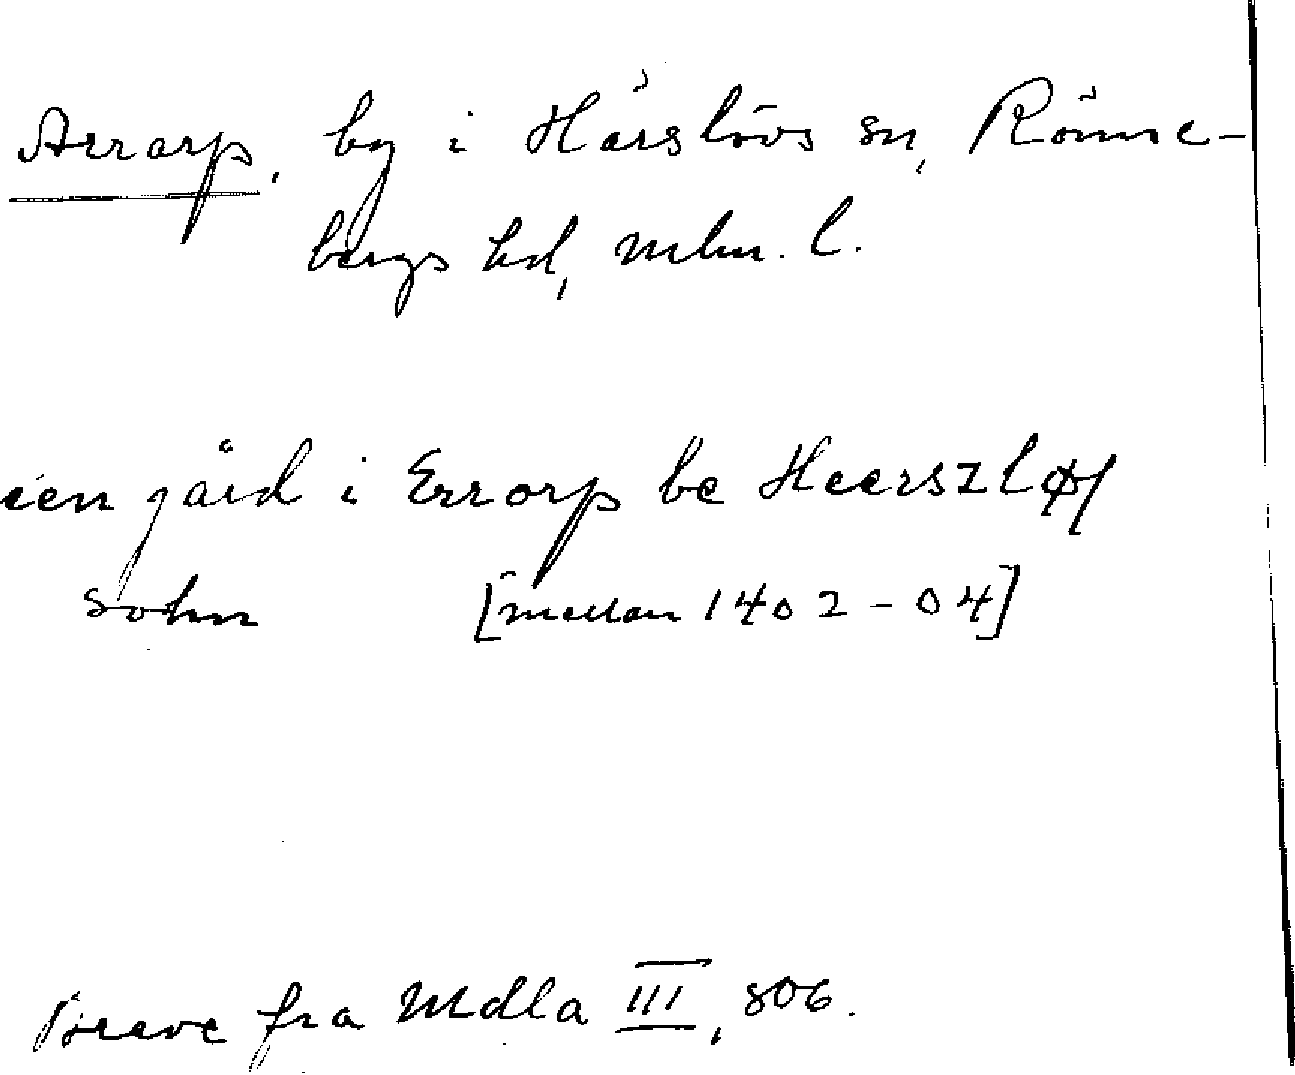 Arrarp, by i Härslövs sn, Rönne-
bergs hd, Mlm. l.
een gård i Errorp be Heerszløf
sohn [mellan 1402-04]
Breve fra Mdla III, 806.